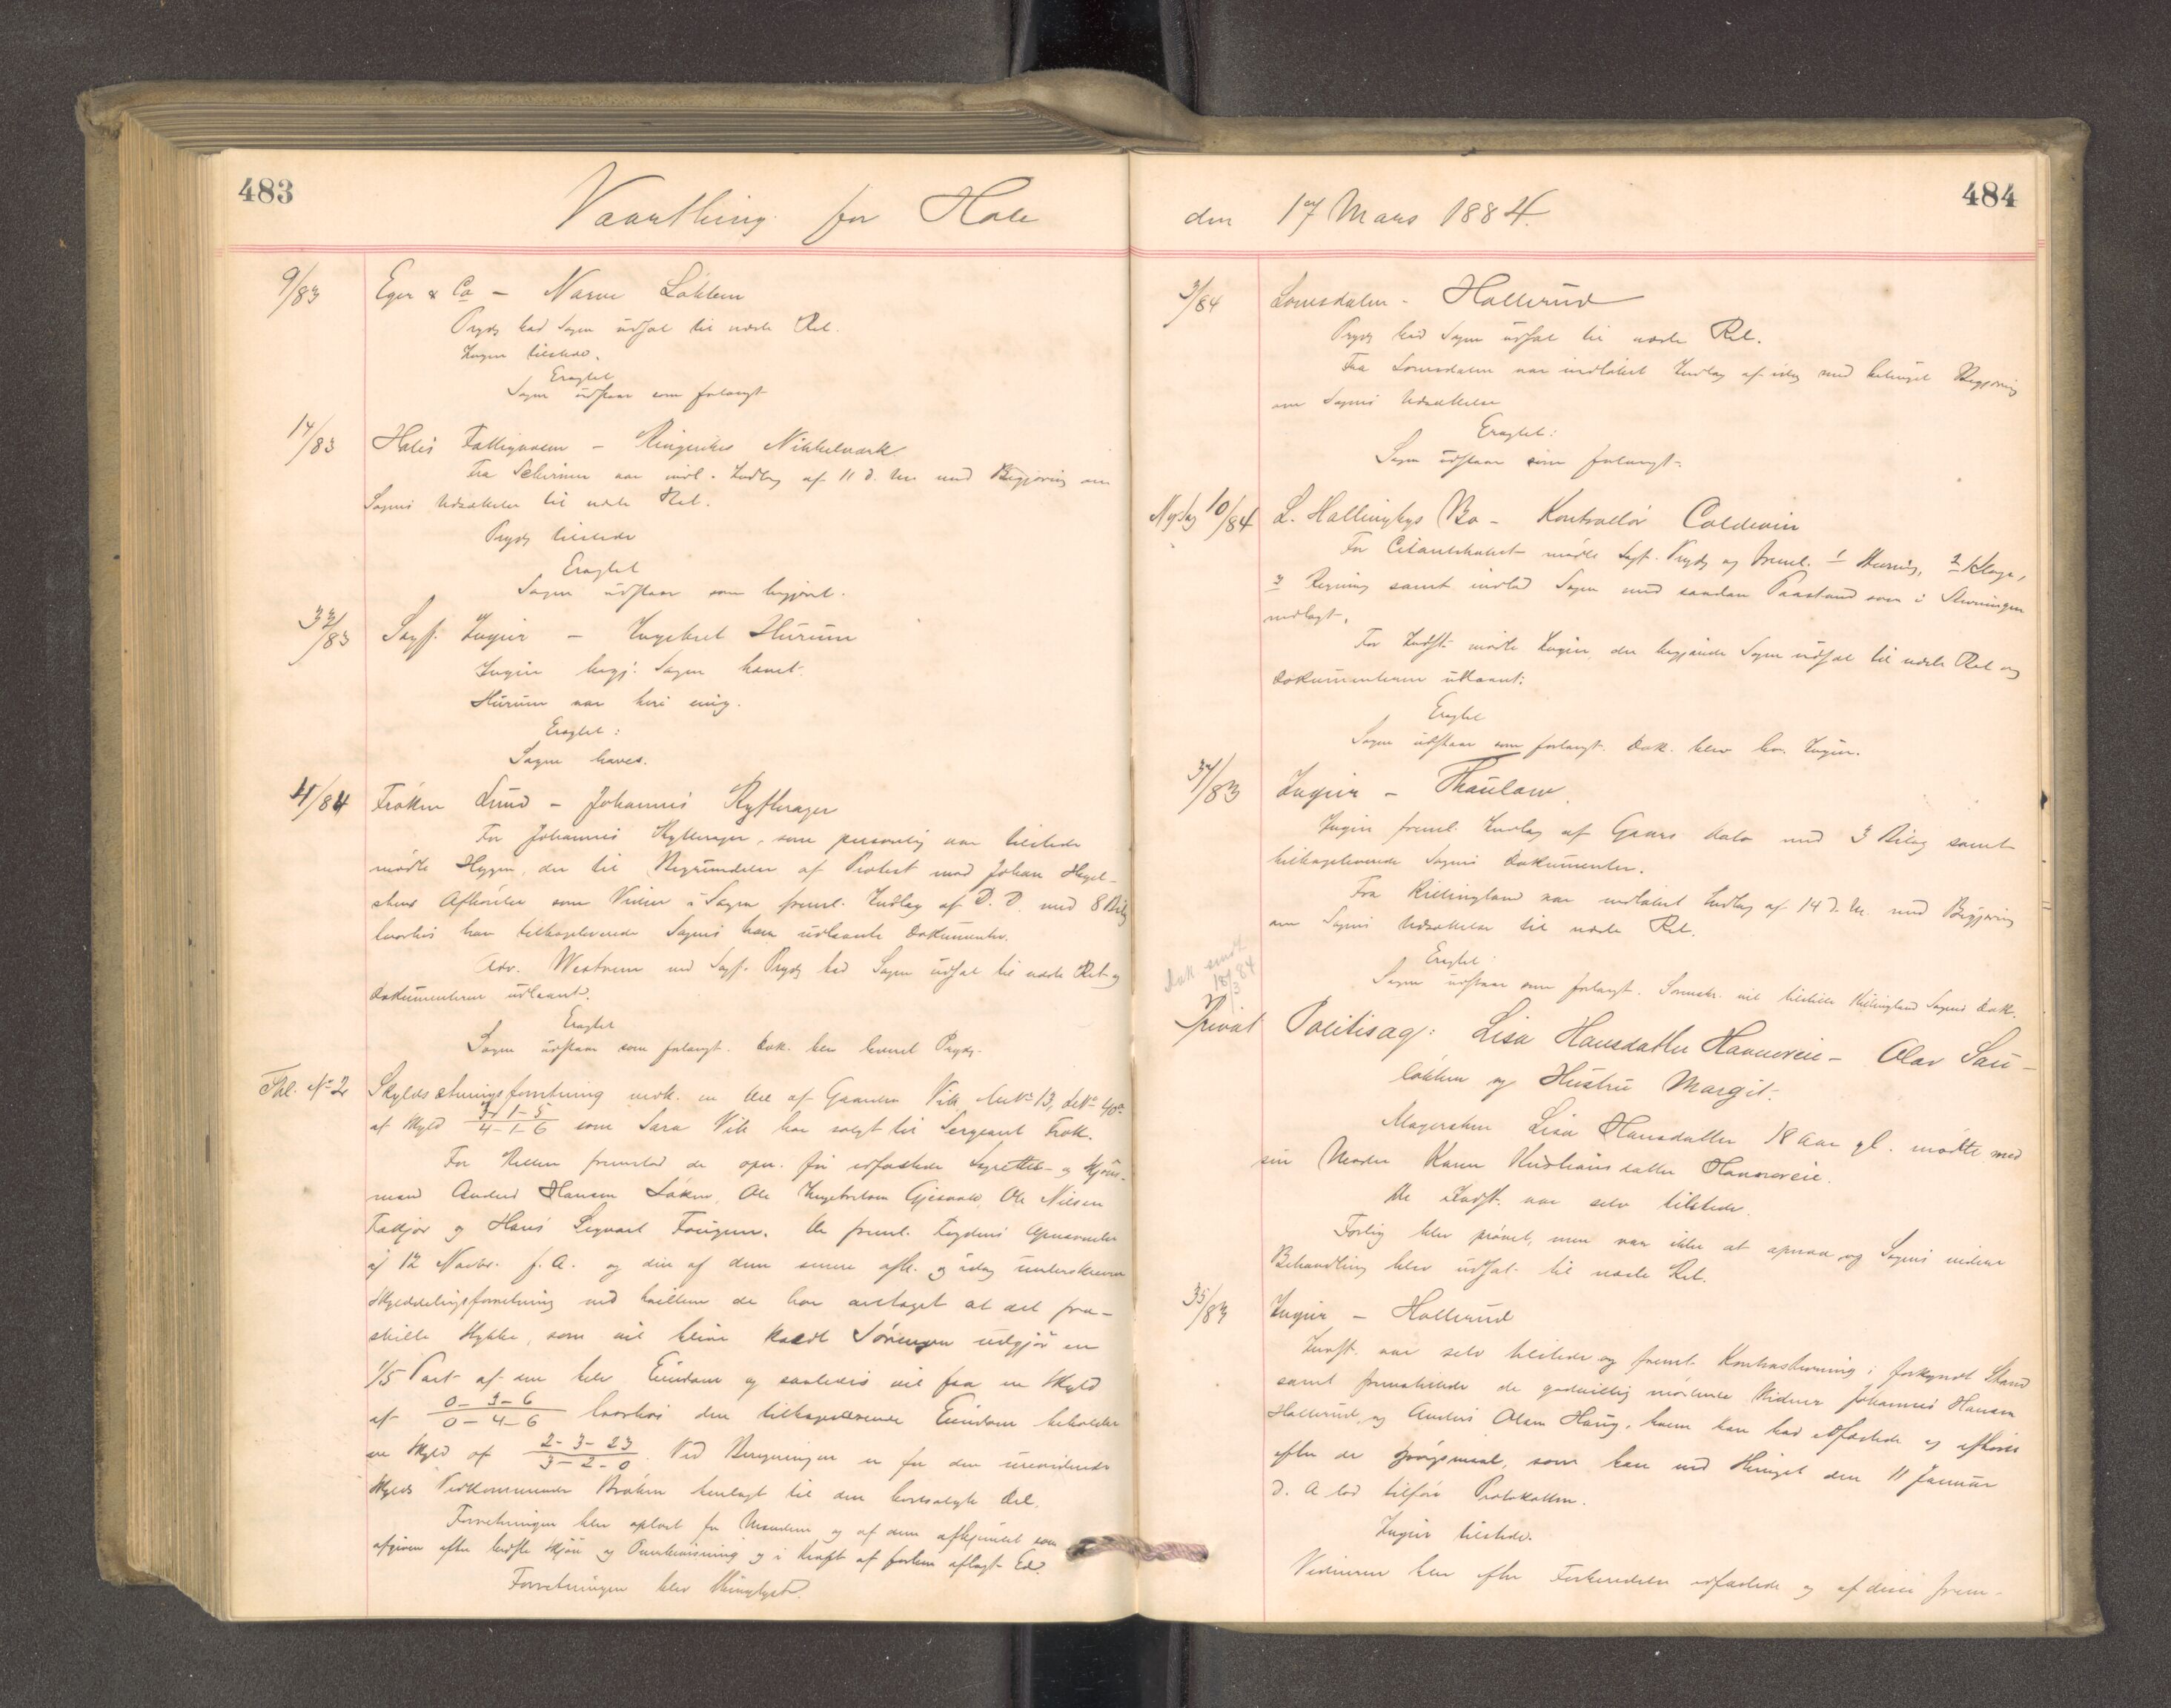 483
Vaarthing for Hole
9/83 Eger & Co – Narve Løkken
Prydz bad Sagen udsat til næste Ret.
Ingier tilstede.
Eragtet
Sagen udstaar som forlangt
14/83 Holes Fattigvæsen – Ringerikes Nikkelværk
Fra var indl. Indlæg af 11 d. M. med Begjæring om
Sagens Udsættelse til næste Ret.
Prydz tilstede
Eragtet
Sagen udstaar som begjært.
33/83 Sagf. Ingier – Ingebret Hurum
Ingier begj. Sagen hævet.
Hurum var heri enig.
Eragtet:
Sagen hæves.
4/84 Frøken Lund – Johannes Rytterager
For Johannes Rytterager, som personlig var tilstede
mødte Hygen, der til Begrundelse af Protest mod Johan
Afhørelse som Vidne i Sagen freml. Indlæg af D. D. med 8 Bilag
hvorhos han tilbageleverede Sagens ham udlaante Dokumenter.
Adv. Westrum ved Sagf. Prydz bad Sagen udsat til næste Ret og
Dokumenterne udlaant.
Eragtet
Sagen udstaar som forlangt. Dok. blev leveret Prydz.
No 2 Skyldsætningsforretning vedk. en Del af Gaarden Vik MNo 13, LNo 40a
af Skyld 3-1-5/4-1-6 som Sara Vik har solgt til Sergeant Frok.
For Retten fremstod de opn. før edfæstede Lagrettes- og Skjøns-
mænd Anders Hansen Løken, Ole Ingebretsen Gjesvold, Ole Nielsen
og Hans Segvart Fougner. De freml. Fogdens Opnævnelse
af 12 Novbr. f. A. og den af dem senere afh. og idag underskrevne
Skylddelingsforretning ved hvilken de har antaget at det fra-
skilte Stykke, som vil blive kaldt udgjør en
1/5 Part af den hele Eiendom og saaledes vil faa en Skyld
af 0-3-6/0-4-6 hvorhos den tilbageværende Eiendom beholder
en Skyld af 2-3-23/3-2-0. Ved Beregningen er for den ureviderede
Skylds Vedkommende Brøken henlagt til den bortsolgte Del.
Forretningen blev oplæst for Mændene og af dem afhjemlet som
afgiven efter bedste Skjøn og Overbevisning og i Kraft af forhen aflagt Ed.
Forretningen blev thinglyst.
484
den 17 Mars 1884.
3/84 Lomsdalen – Hollerud
Prydz bad Sagen udsat til næste Ret.
Fra Lomsdalen var indløbet Indlæg af idag med betinget Begjæring
om Sagens Udsættelse
Eragtet:
Sagen udstaar som forlangt.
Ny Sag 10/84 L. Hallingbys Bo – Kontrollør Coldevin
For Citantskabet mødte Sagf. Prydz og freml. 1 Stevning, 2 Klage,
3 Regning samt indlod Sagen med saadan Paastand som i Stevningen
nedlagt.
For Indst. mødte Ingier, der begjærede Sagen udsat til næste Ret og
Dokumenterne udlaant.
Eragtet
Sagen udstaar som forlangt. Dok. blev lev. Ingier.
34/83 Ingier – Thaulow
Ingier freml. Indlæg af Gaars Dato med 3 Bilag samt
tilbageleverede Sagens Dokumenter.
Fra Killingland var indløbet Indlæg af 14 d. M. med Begjæring
om Sagens Udsættelse til næste Ret.
Eragtet
Sagen udstaar som forlangt. Sorenskr. vil tilstille Killingland Sagens Dok.
Dok sendt
18/3 84
Privat Politisag: Lisa Hansdatter Hanserveie – Olav Sau-
løkken og Hustru Margit.
Klagersken Lisa Hansdatter 18 Aar gl. mødte med
sin Moder Karen Kristiansdatter
De Indst. var selv tilstede.
Forlig blev prøvet, men var ikke at opnaa og Sagens videre
Behandling blev udsat til næste Ret.
35/83 Ingier – Hollerud
Indst. var selv tilstede og freml. Kontrastevning i forkyndt Stand
samt fremstillede de godvillig mødende Vidner Johannes Hansen
Hollerud og Anders Olsen Haug, hvem han bad edfæstede og afhørt
efter de Spørgsmaal, som han ved Thinget den 11 Januar
d. A. lod tilføre Protokollen.
Ingier tilstede.
Vidnerne blev efter Foreheredelse edfæstede og af disse frem-